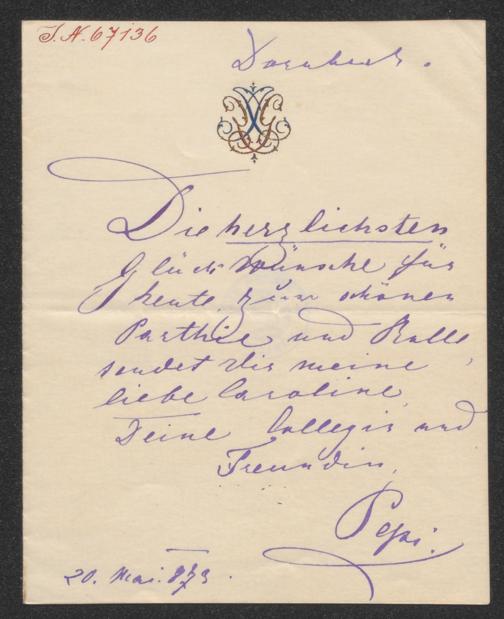 I.N. 67136
Dornbach.
Die herzlichsten
Glückwünsche für
heute, zur schönen
Parthie und Rolle,
sendet Dir meine
liebe Caroline,
Deine Collegin und
Freundin,
Pepi.
20. Mai. 873.